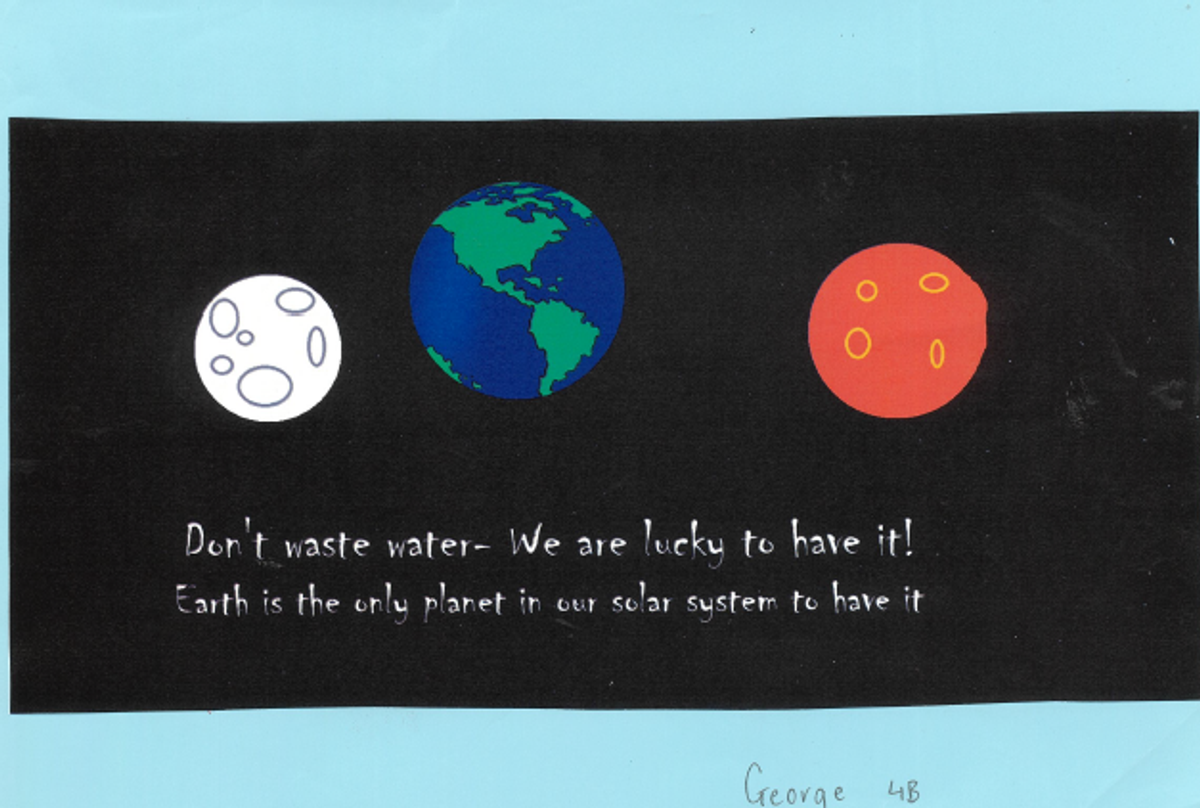 Don't waste water- We are lucky to have it!
Earth is the only planet in our solar system to have it
George 4B